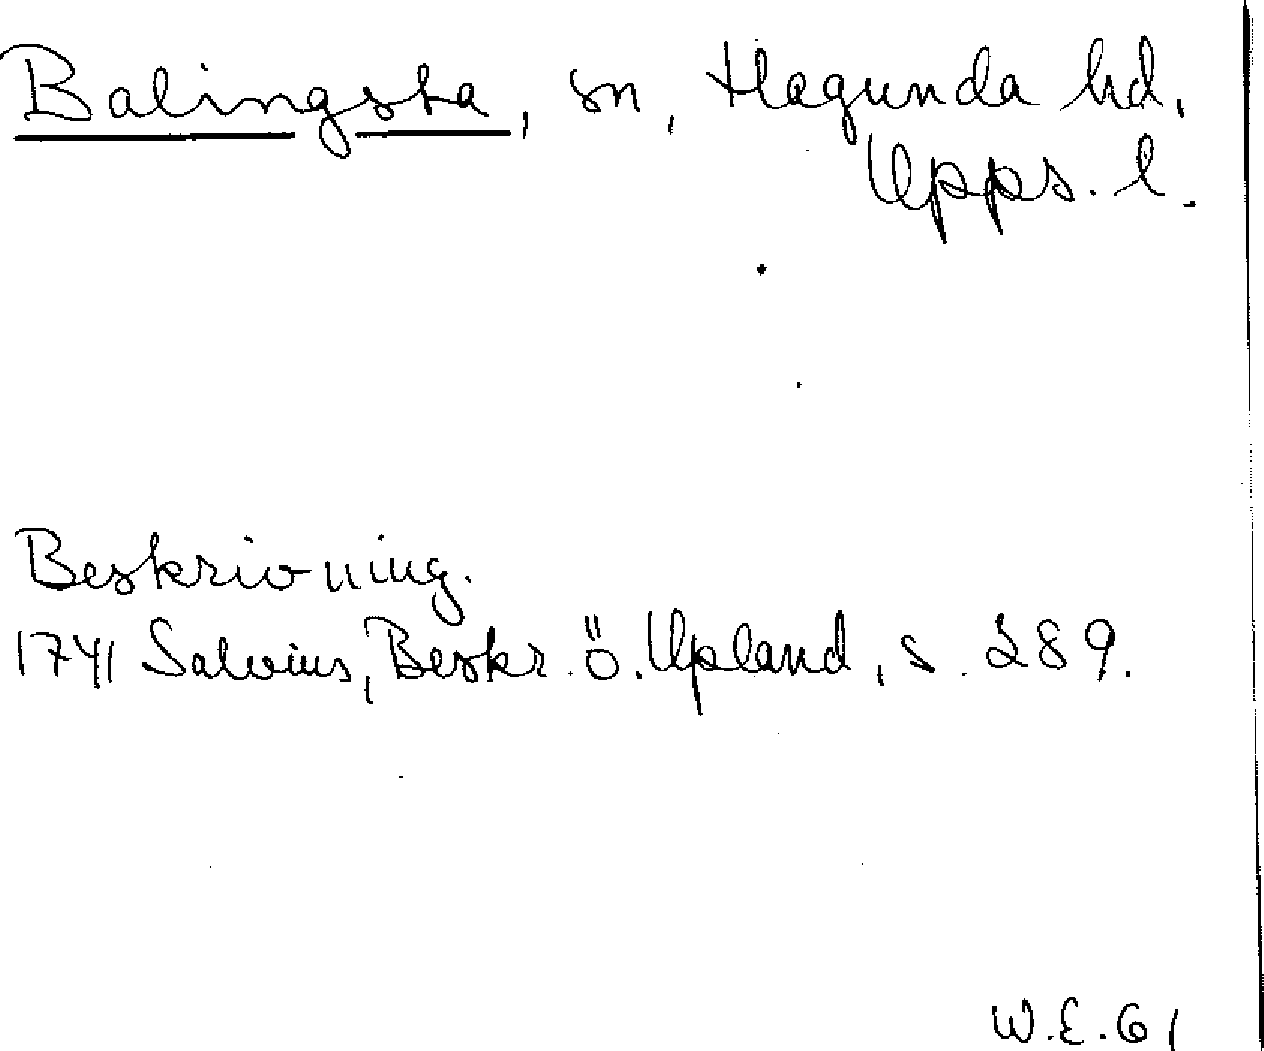 Balingsta, sn, Hagunda hd,
Upps. l.
Beskrivning.
1741 Salvius, Beskr. ö. Upland, s. 289.
W.E. 61